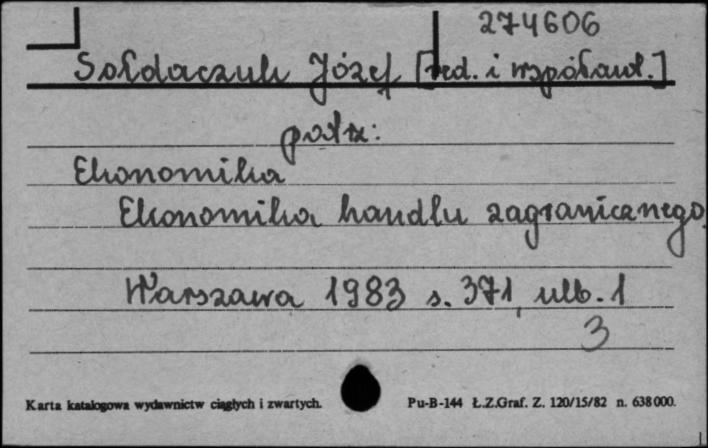 274606
Sołdaczuk Józef [red. i współaut.]
patrz:
Ekonomika
Ekonomika handlu zagranicznego.
Warszawa 1983 s. 371, nlb. 1
3
Karta katalogowa wydawnictw ciągłych i zwartych.
Pu-B-144 Ł.Z.Graf. Z. 120/15/82 n. 638000.